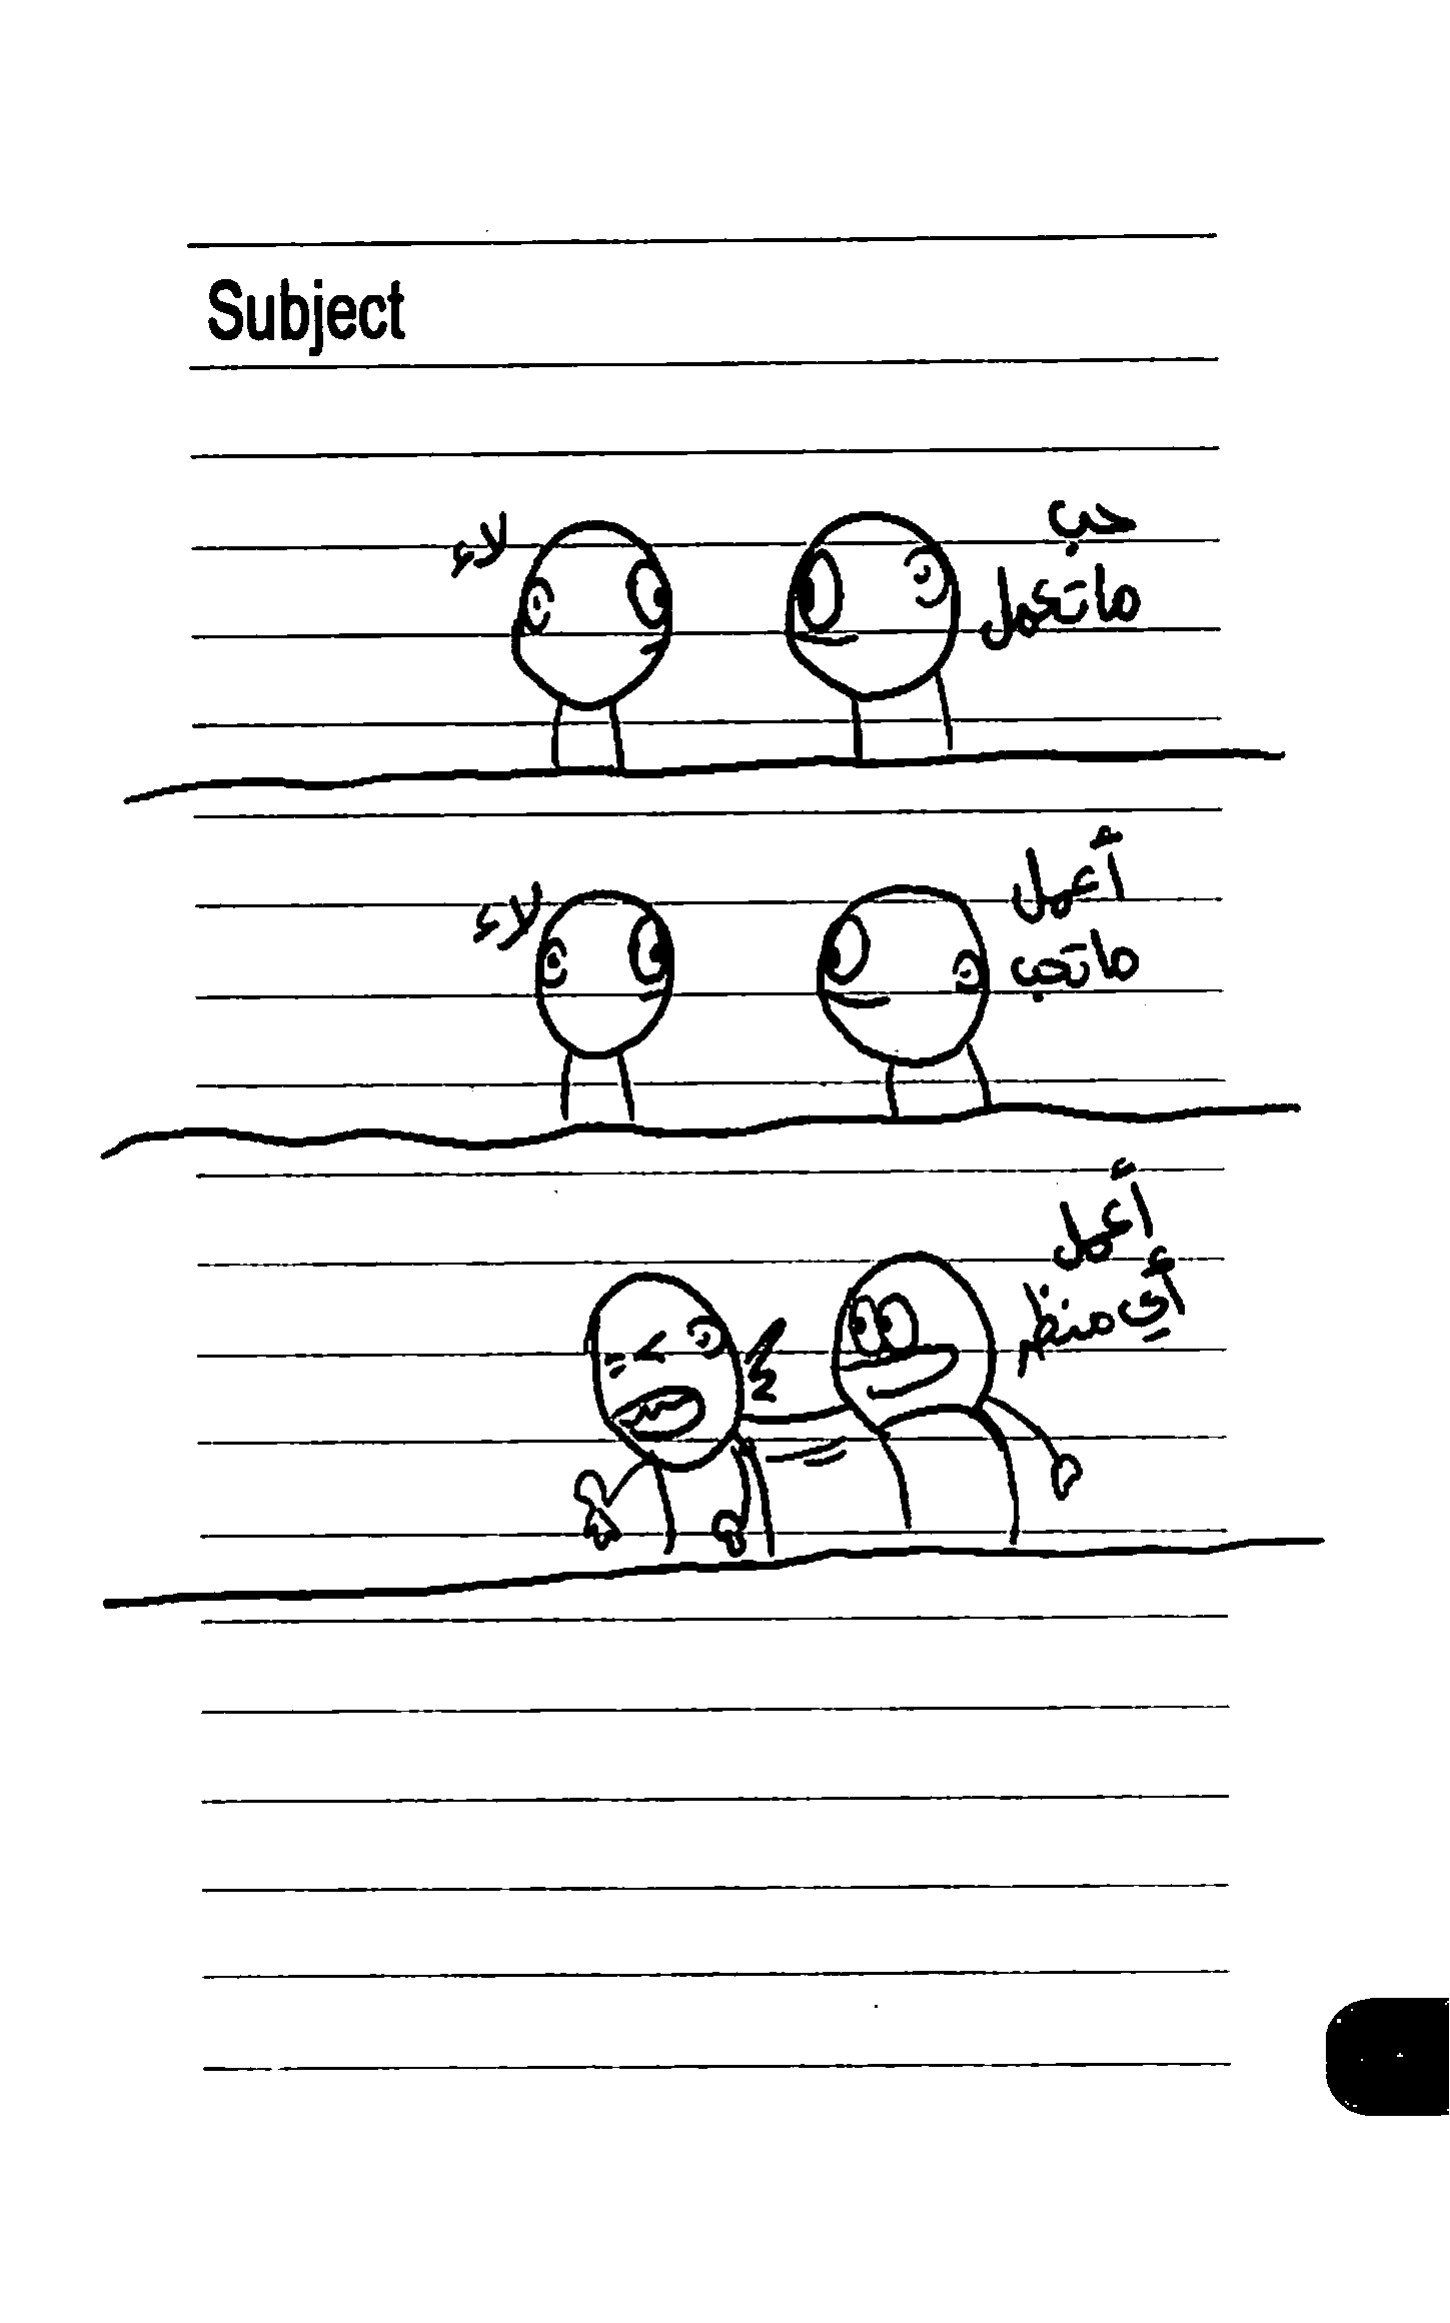 Subject
حب
ماتعمل
لاء
أعمل
ماتحب
لاء
أعمل
أي منظر